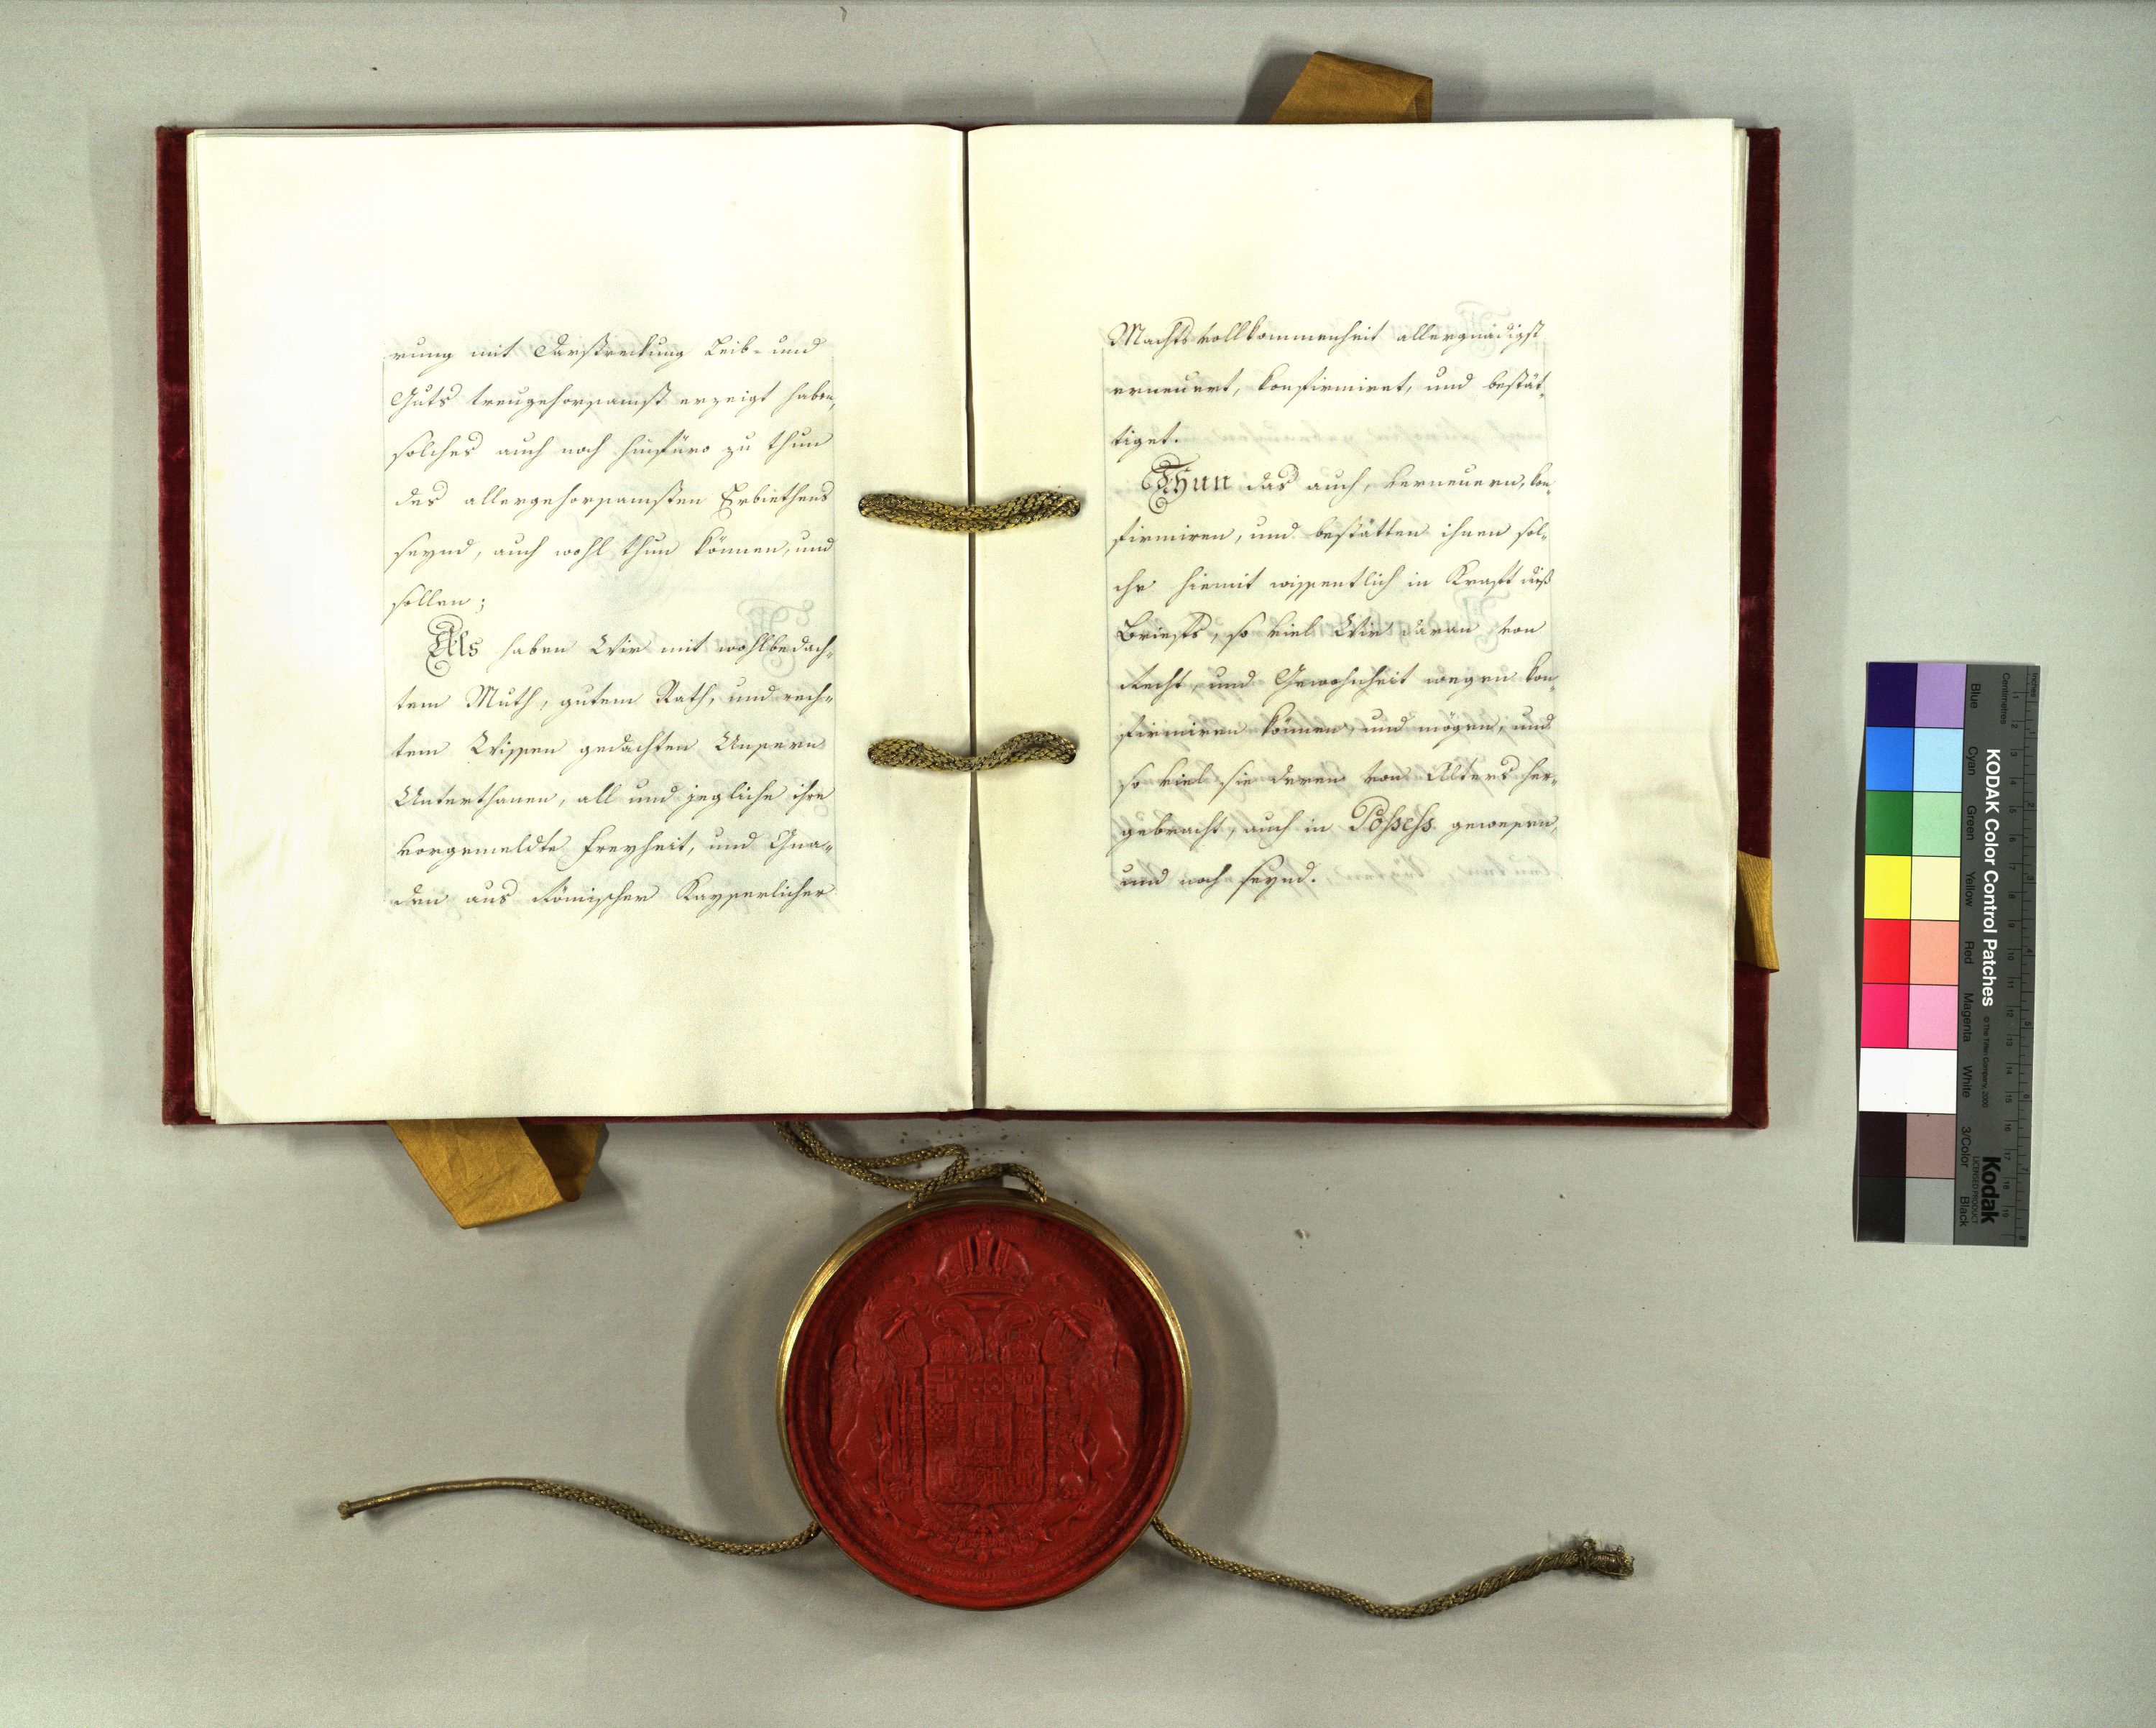 rung mit Darstreckung Leib- und
Guts treugehorsamst erzeigt haben,
solches auch noch hinfüro zu thun
des allergehorsamsten Erbiethens
seynd, auch wohl thun können, und
sollen;
Als haben Wir mit wohlbedach-
tem Muth, gutem Rath, und rech-
tem Wissen gedachten Unsern
Unterthanen, all und jegliche ihre
vorgemeldte Freyheit, und Gna-
den aus Römischer Kayserlicher
Machts vollkommenheit allergnädigst
erneuert, konfirmiret, und bestät-
tiget.
Thun das auch, verneuern, kon-
firmiren, und bestätten ihnen sol-
che hiemit wissentlich in Kraft dieß
Briefs, so viel Wir daran von
Recht, und Gewohnheit wegen kon-
firmiren können, und mögen, und
so viel sie deren von Alters her-
gebracht, auch in Possess gewesen,
und noch seynd.
KODAK Color Control Patches
© The Tiffen Company, 2000
Kodak
LICENSED PRODUCT
Blue
Cyan
Green
Yellow
Red
Magenta
White
3/Color
Black
Inches
Centimetres
1
2
3
4
5
6
7
8
9
10
11
12
13
14
15
16
17
18
19